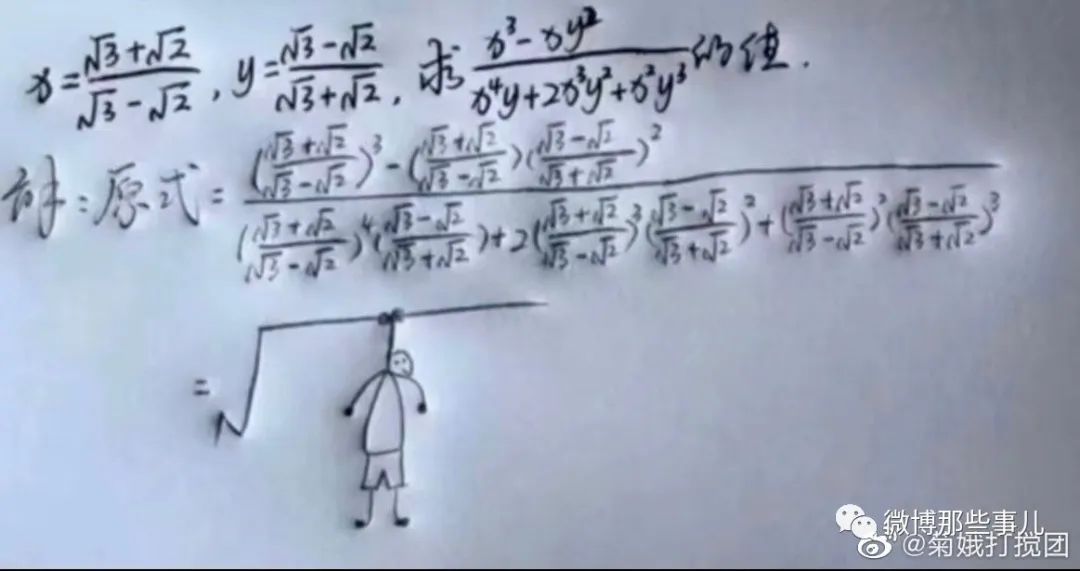 x=(√3+√2)/(√3-√2), y=(√3-√2)/(√3+√2), 求 (x³-xy²)/(x⁴y+2x³y²+x²y³) 的值.
解:原式=(((√3+√2)/(√3-√2))³-((√3+√2)/(√3-√2))((√3-√2)/(√3+√2))²)/(((√3+√2)/(√3-√2))⁴((√3-√2)/(√3+√2))+2((√3+√2)/(√3-√2))³((√3-√2)/(√3+√2))²+((√3+√2)/(√3-√2))²((√3-√2)/(√3+√2))³)
=√
微博那些事儿
@菊娥打搅团